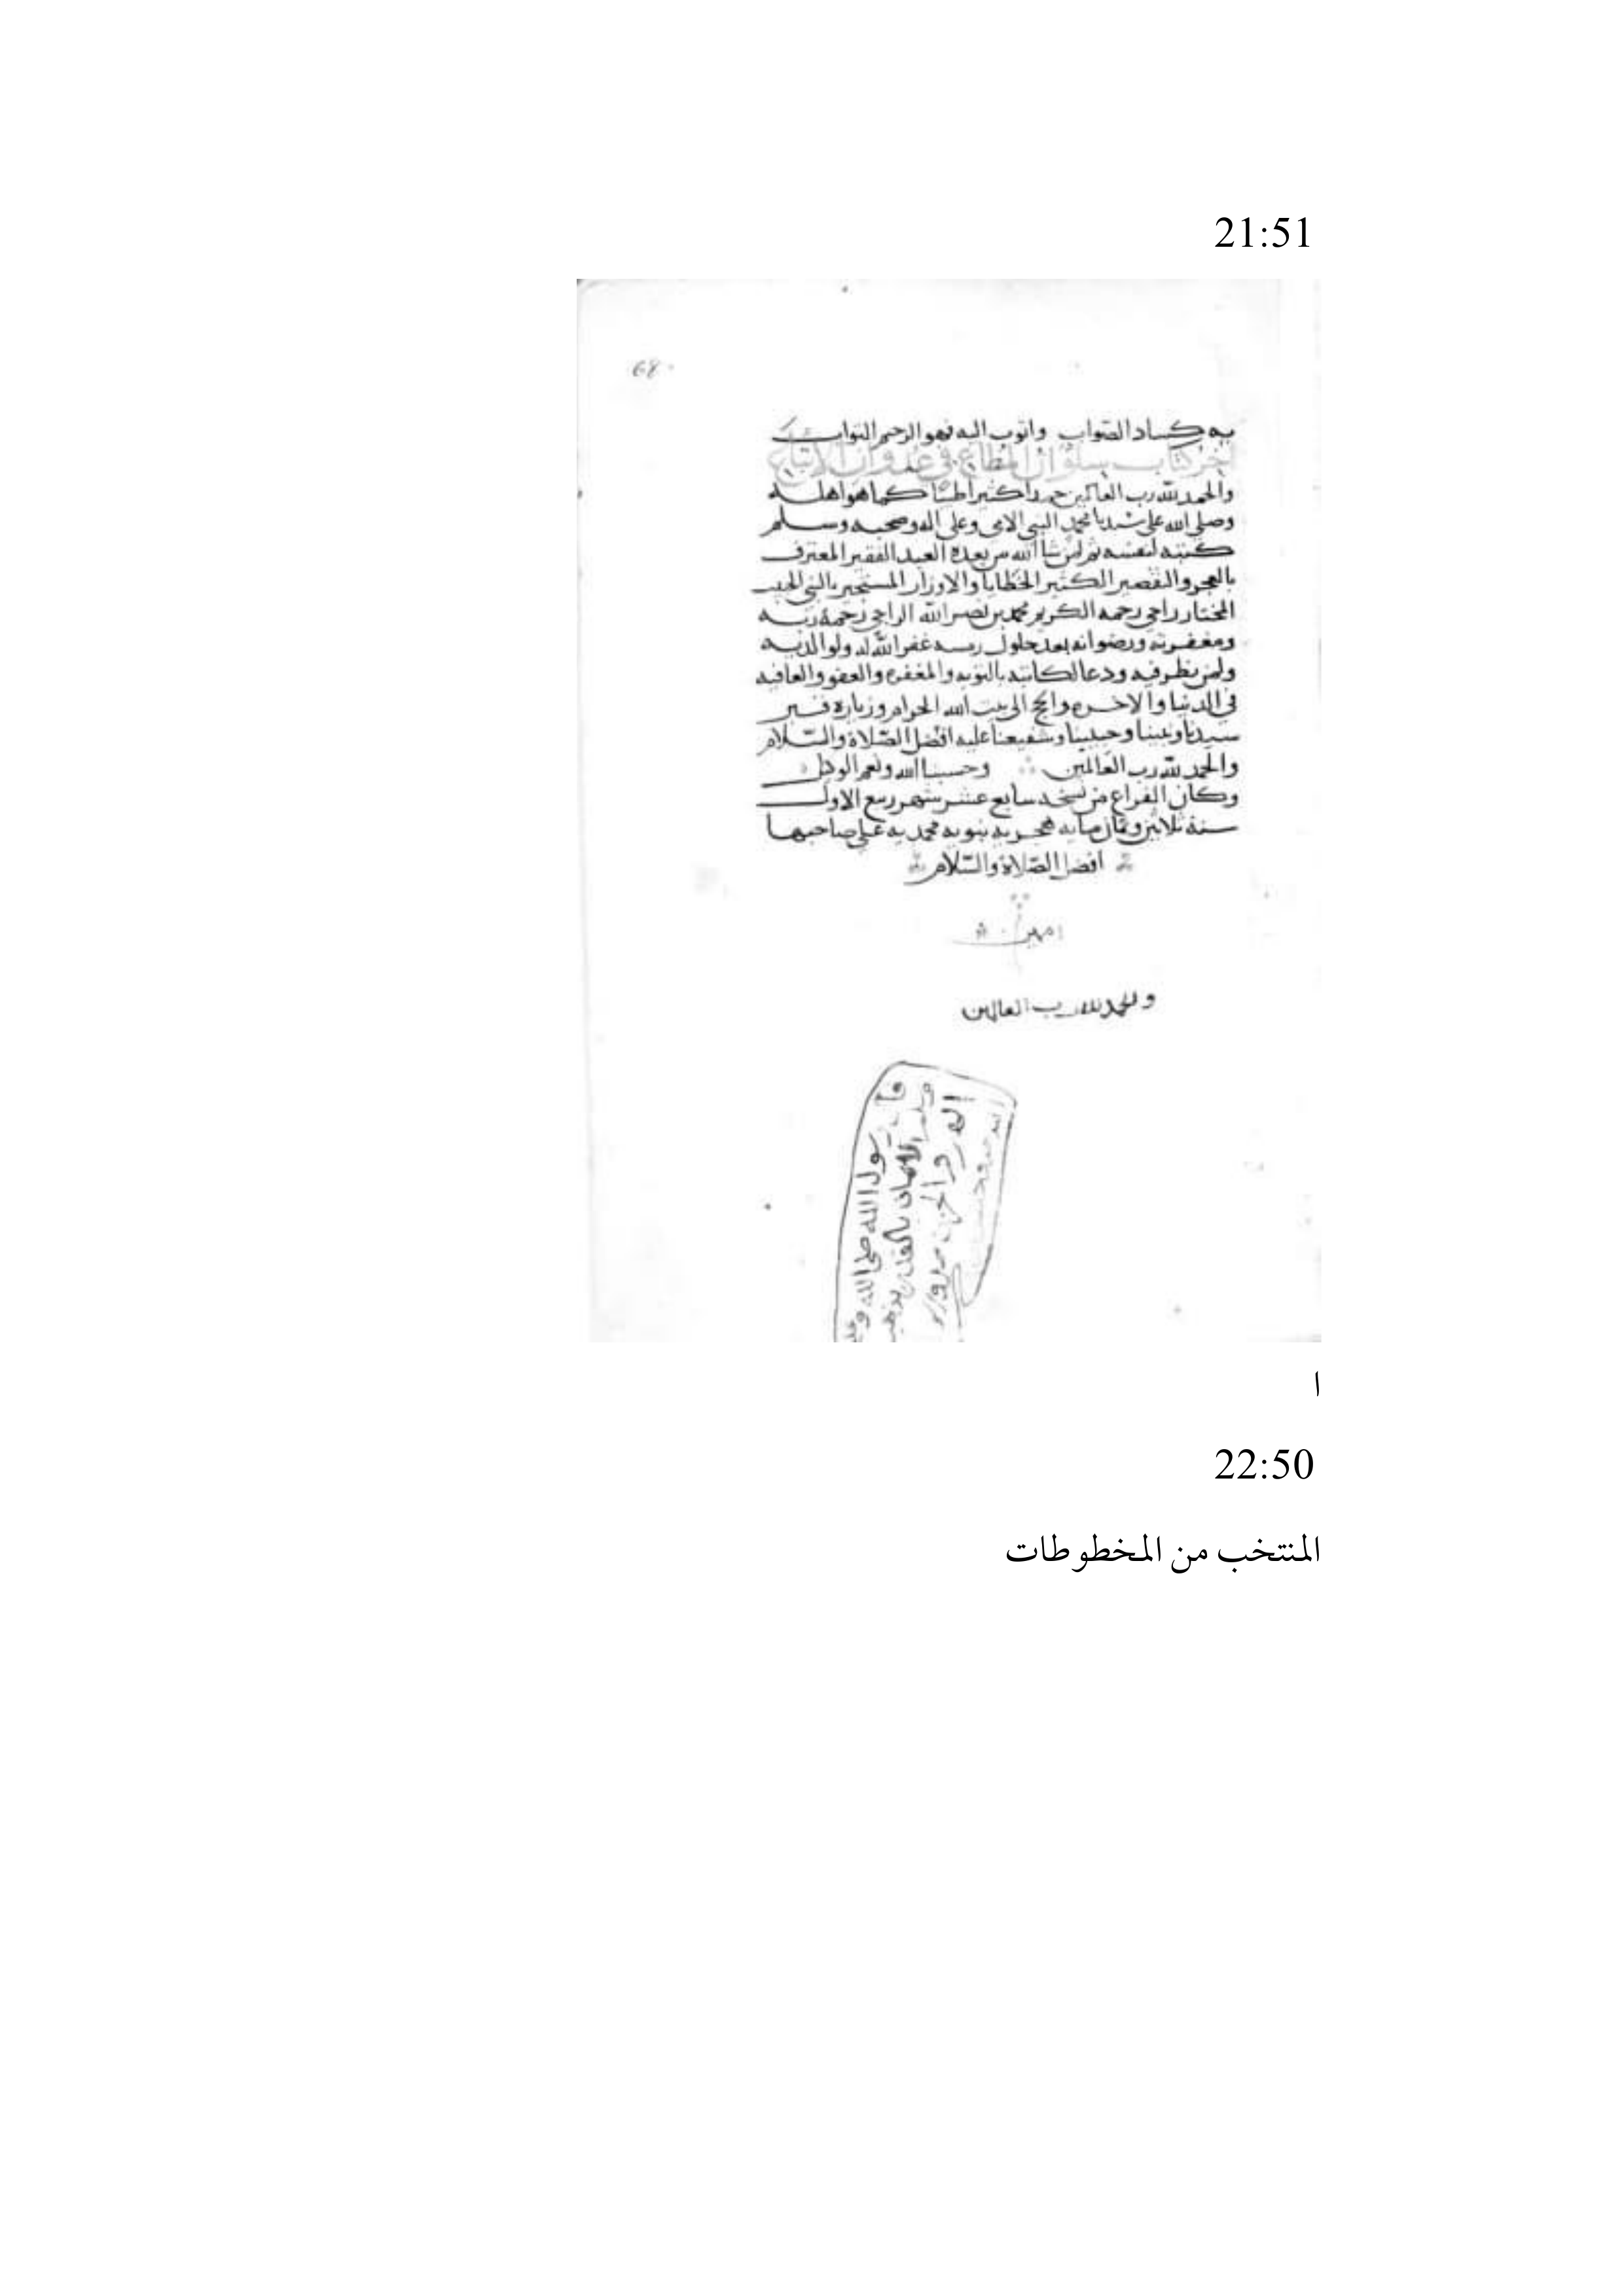 21:51
68
به كساد الصواب واتوب اليه فهو الرحيم التواب
آخر كتاب سلوان المطاع في عدوان الاتباع
والحمد لله رب العالمين حمدا كثيرا طيبا كما هو اهله
وصلى الله على سيدنا محمد النبي الامي وعلى اله وصحبه وسلم
كتبه لنفسه ثم لمن شا الله من بعده العبد الفقير المعترف
بالعجز والتقصير الكثير الخطايا والاوزار المستجير بالنبي الحبيب
المختار راجي رحمه الكريم محمد بن نصر الله الراجي رحمة ربه
ومغفرته ورضوانه بعد حلول رمسه غفر الله له ولوالديه
ولمن نظر فيه ودعا لكاتبه بالتوبه والمغفره والعفو والعافيه
في الدنيا والاخره والحج الى بيت الله الحرام وزياره قبر
سيدنا ونبينا وحبيبنا وشفيعنا عليه افضل الصلاة والسلام
والحمد لله رب العالمين وحسبنا الله ونعم الوكيل
وكان الفراغ من نسخه سابع عشر شهر ربيع الاول
سنة ثلاثين وثمان مايه هجريه نبويه محمديه على صاحبها
افضل الصلاة والسلام
امين
والحمد لله رب العالمين
رسول الله صلى الله
الايمان بالقدر يذهب
الهم والحزن
ا
22:50
المنتخب من المخطوطات